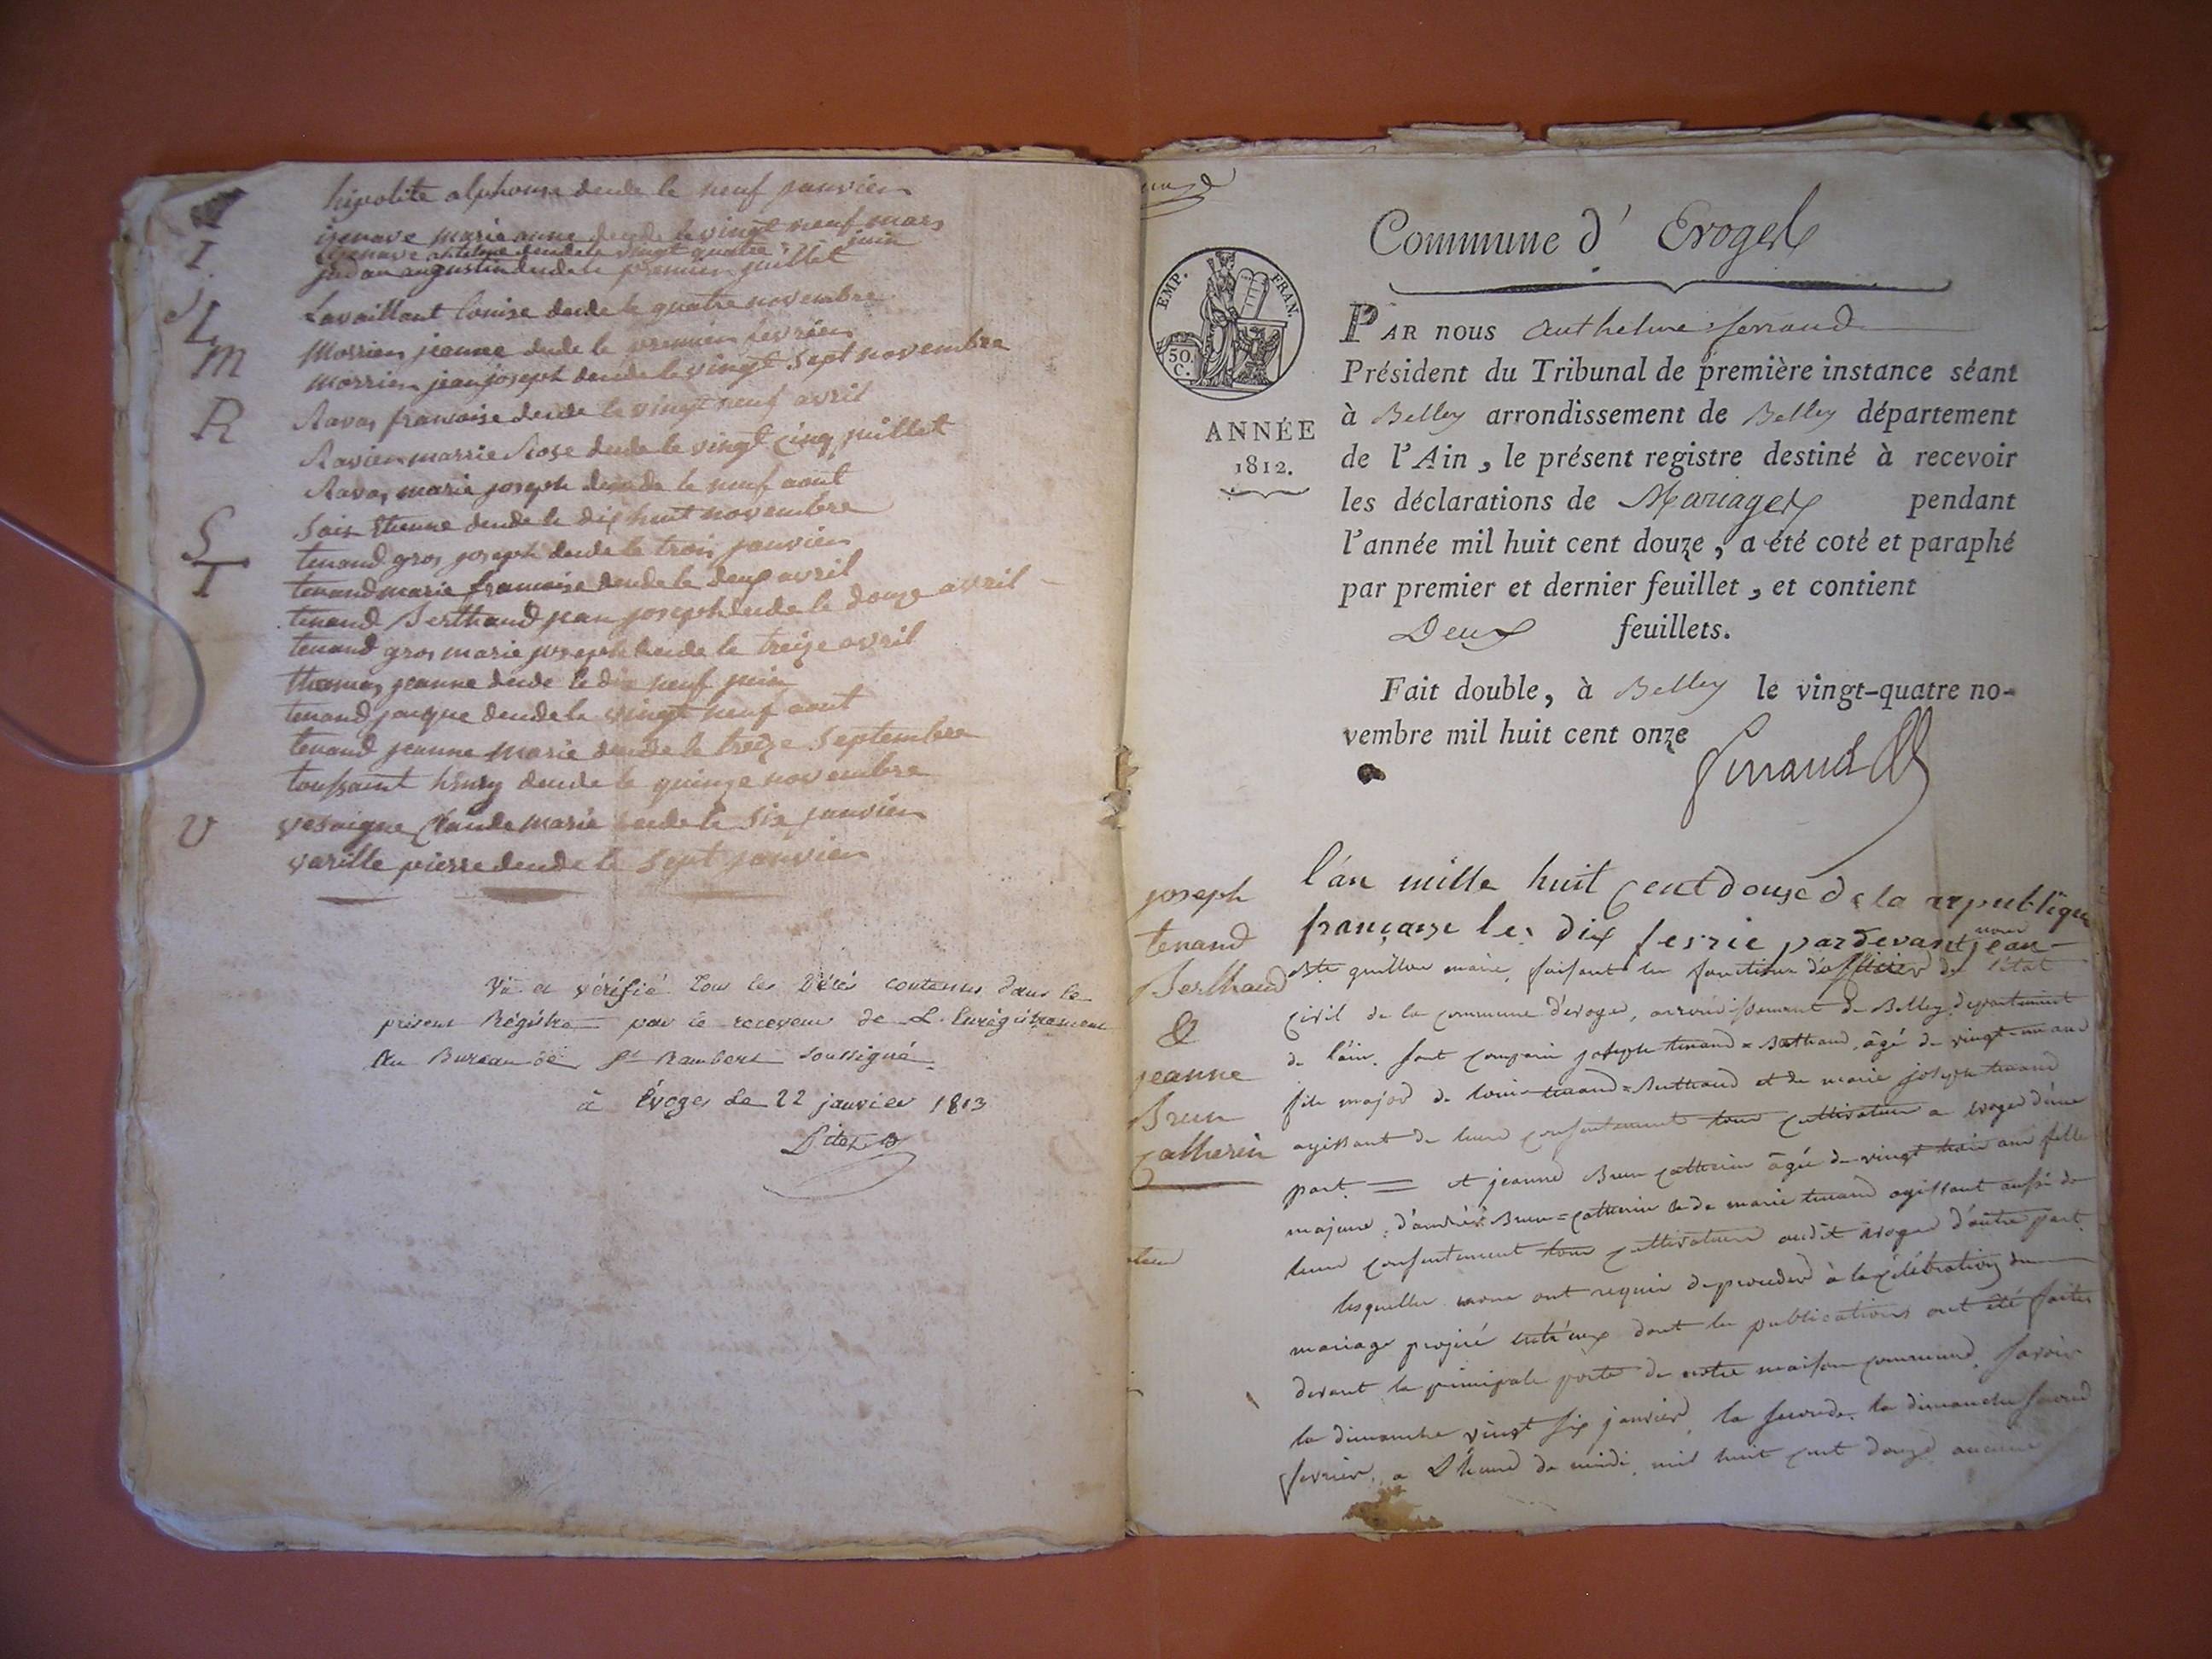 hipolite alphonse dcede le neuf janvier
I
marie anne dcede le vingt neuf mars
dcede le vingt quatre juin
augustin dcede le premier juillet
L
Lavaillant louise dcede le quatre novembre
M
Morrier jeanne dcede le premier fevrier
Morrier jean joseph dcede le vingt sept novembre
R
Ravas francoise dcede le vingt neuf avril
marie Rose dcede le vingt cinq juillet
Ravas marie joseph dcede le neuf aout
S
etienne dcede le dix huit novembre
T
tenand gros joseph dcede le trois janvier
tenand marie francoise dcede le deux avril
tenand Berthaud jean joseph dcede le douze avril
tenand gros marie joseph dcede le treize avril
thomas jeanne dcede le dix neuf juin
tenand jacque dcede le vingt neuf aout
tenand jeanne marie dcede le treize Septembre
toussaint henry dcede le quinze novembre
V
vesaigne Claude marie dcede le Six janvier
varille pierre dcede le Sept janvier
Vu et vérifié tous les Décès contenus dans le
présent Régistre par le receveur de L'Enrégistrement
Au Bureau de St Rambert Soussigné
à Évoges Le 22 janvier 1813
Commune d' Evoges
EMP. FRAN.
50.
C.
ANNÉE
1812.
PAR nous Anthelme ferrand
Président du Tribunal de première instance séant
à Belley arrondissement de Belley département
de l'Ain, le présent registre destiné à recevoir
les déclarations de Mariages pendant
l'année mil huit cent douze, a été coté et paraphé
par premier et dernier feuillet, et contient
Deux feuillets.
Fait double, à Belley le vingt-quatre no-
vembre mil huit cent onze
ferrand
joseph
tenand
Berthaud
&
jeanne
Brun
Catherin
l'an mille huit Cent douse de la republique
françaises les dix fevrie pardevant nous jean
Bte guillon maire, faisant les fonctions d'officier de l'état
Civil de la commune d'evoges, arrondissement de Belley, departement
de l'ain. sont comparu joseph tenand = Berthaud, âgé de vingt-un ans
fils majeur de louis tenand = Berthaud et de marie joseph tenand
agissant de leurs consentement tous cultivateurs a evoges d'une
part = et jeanne Brun Catherin âgée de vingt trois ans fille
majeure d'andré Brun = Catherin & de marie tenand agissant aussi de
leurs consentement tous cultivateurs audit evoges d'autre part.
lesquelles nous ont requis de proceder à la célébration du
mariage projeté entr'eux dont les publications ont été faites
devant la principale porte de notre maison commune, savoir
la dimanche vingt six janvier, la seconde la dimanche second
fevrier, a l'heure de midi, mil huit cent douze aucune